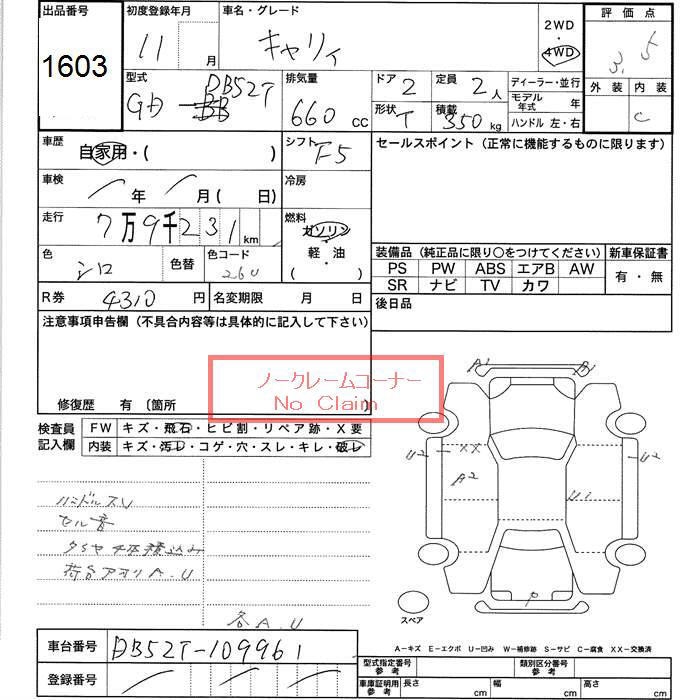 出品番号
1603
初度登録年月
11 月
車名・グレード
キャリィ
2WD
・
4WD
評価点
3.5
外装 内装
C
型式
GD BB DB52T
排気量
660 cc
ドア 2
定員 2 人
形状 T
積載 350 kg
ディーラー・並行
モデル年式 年
ハンドル 左・右
車歴
自家用・( )
シフト
F5
セールスポイント (正常に機能するものに限ります)
車検
年 月 ( 日)
冷房
走行
7万9千231 km
燃料
ガソリン
軽・油
( )
色
シロ
色替
色コード
26U
装備品 (純正品に限り○をつけてください)
PS PW ABS エアB AW
SR ナビ TV カワ
新車保証書
有・無
R券 4310 円
名変期限 月 日
後日品
注意事項申告欄 (不具合内容等は具体的に記入して下さい)
ノークレームコーナー
No Claim
修復歴 有 〔箇所 〕
検査員
記入欄
FW キズ・飛石・ヒビ割・リペア跡・X要
内装 キズ・汚レ・コゲ・穴・スレ・キレ・破レ
ハンドルスレ
セル音
荷台アオリA.U
各A.U
A1
U2
XX
A2
U1
U2
P
スペア
A-キズ E-エクボ U-凹み W-補修跡 S-サビ C-腐食 XX-交換済
車台番号 DB52T-109961
登録番号
型式指定番号
参考
類別区分番号
参考
車庫証明用
参考
長さ cm
幅 cm
高さ cm